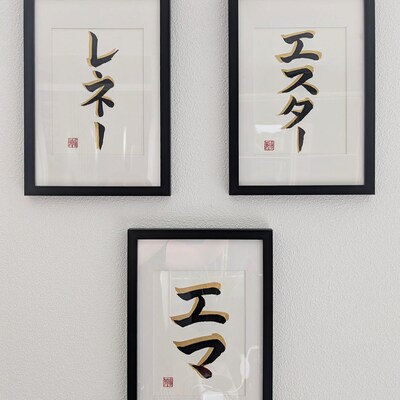 レネー
エスター
エマ